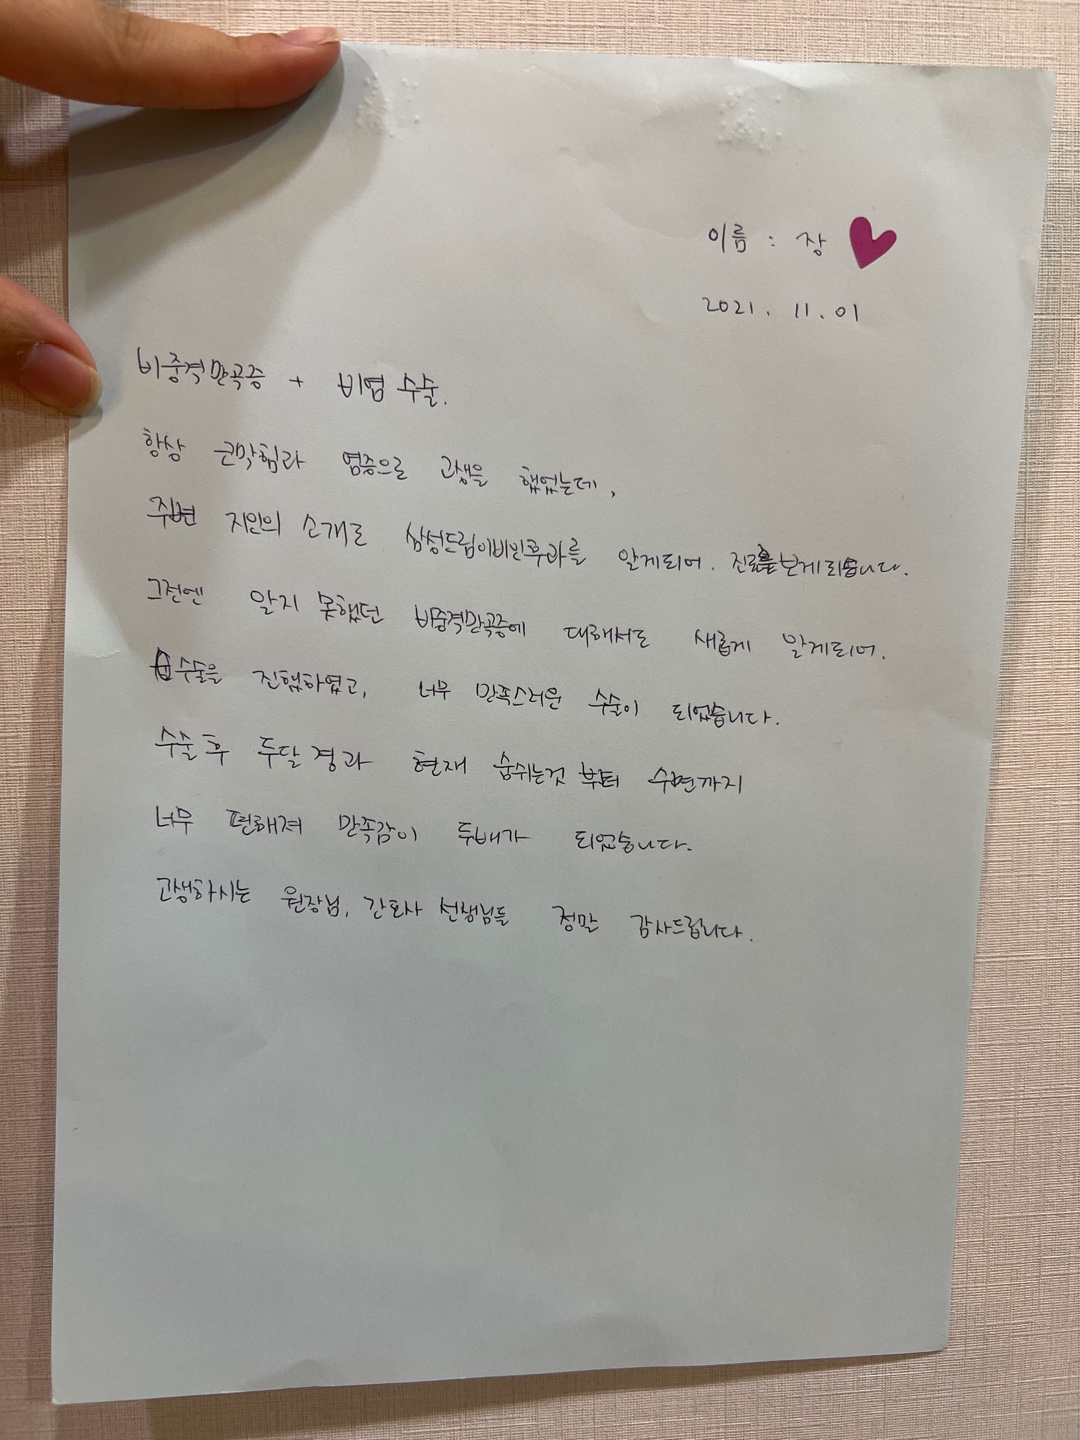 이름 : 장
2021. 11. 01
비중격만곡증 + 비염 수술.
항상 코막힘과 염증으로 고생을 했었는데,
주변 지인의 소개로 삼성드림이비인후과를 알게되어. 진료를 보게되습니다.
그전엔 알지 못했던 비중격만곡증에 대해서도 새롭게 알게되어.
수술을 진행하였고, 너무 만족스러운 수술이 되었습니다.
수술 후 두달 경과 현재 숨쉬는것 부터 수면까지
너무 편해져 만족감이 두배가 되었습니다.
고생하시는 원장님, 간호사 선생님들 정말 감사드립니다.